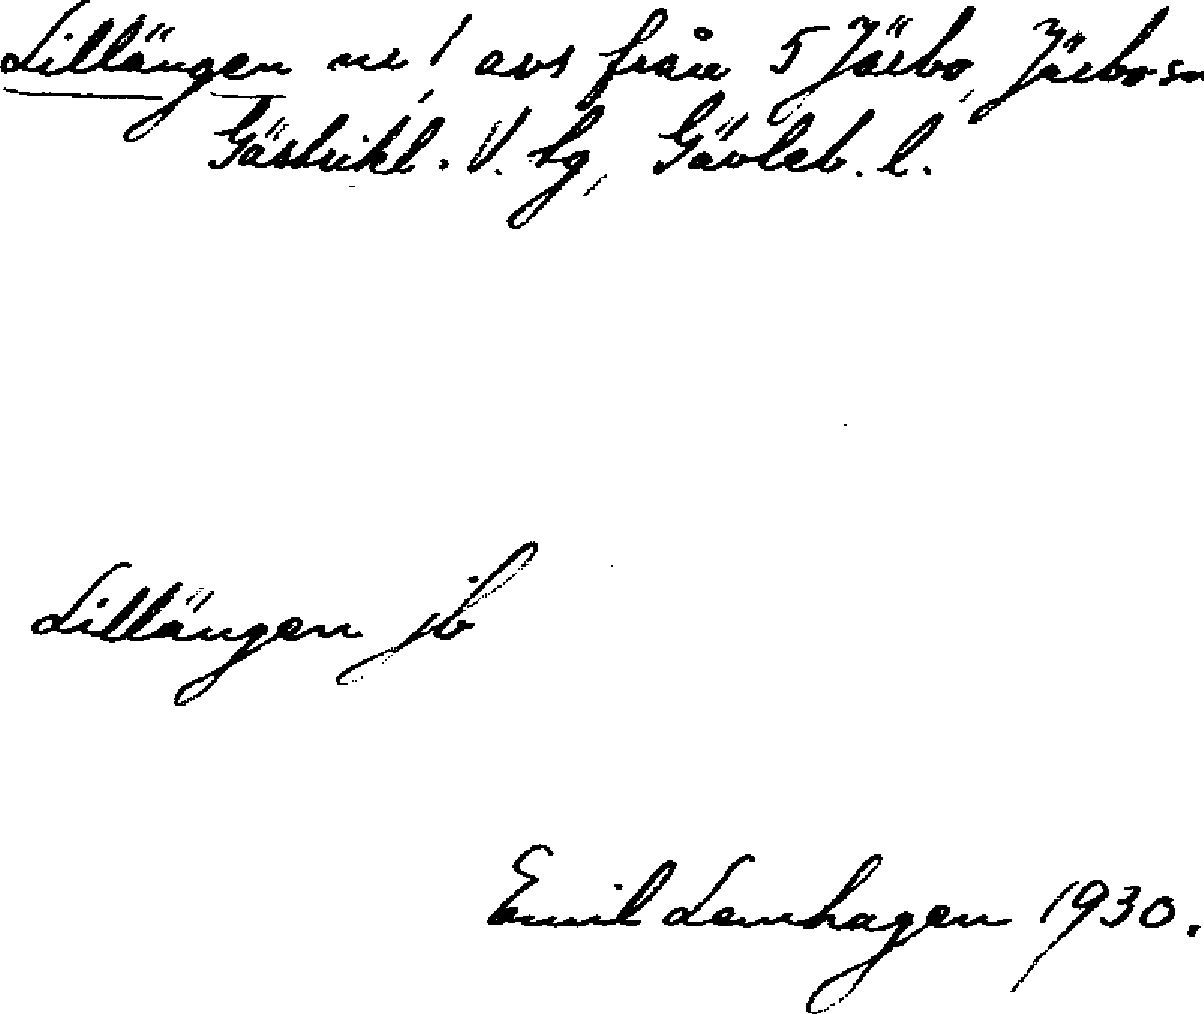 Lillängen nr 1 avs från 5 Järbo, Järbo sn
Gästrikl. V. tg, Gävleb. l.
Lillängen jb
Emil Lenhagen 1930.